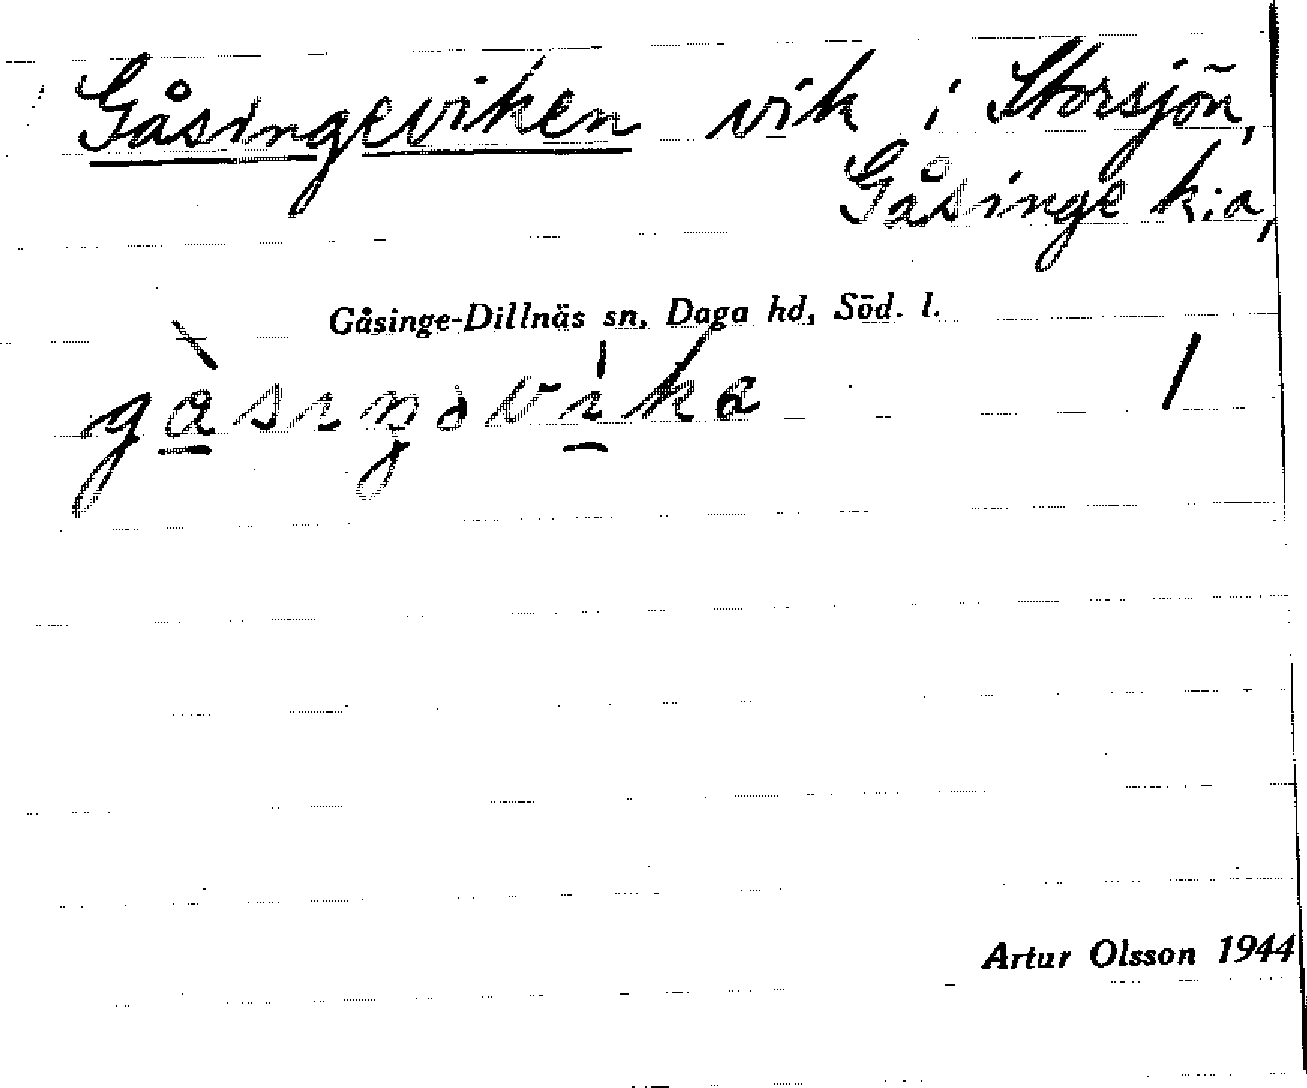 Gåsingeviken vik i Storsjön,
Gåsinge k:a,
Gåsinge-Dillnäs sn, Daga hd, Söd. l.
gàsıŋəvika 1
Artur Olsson 1944